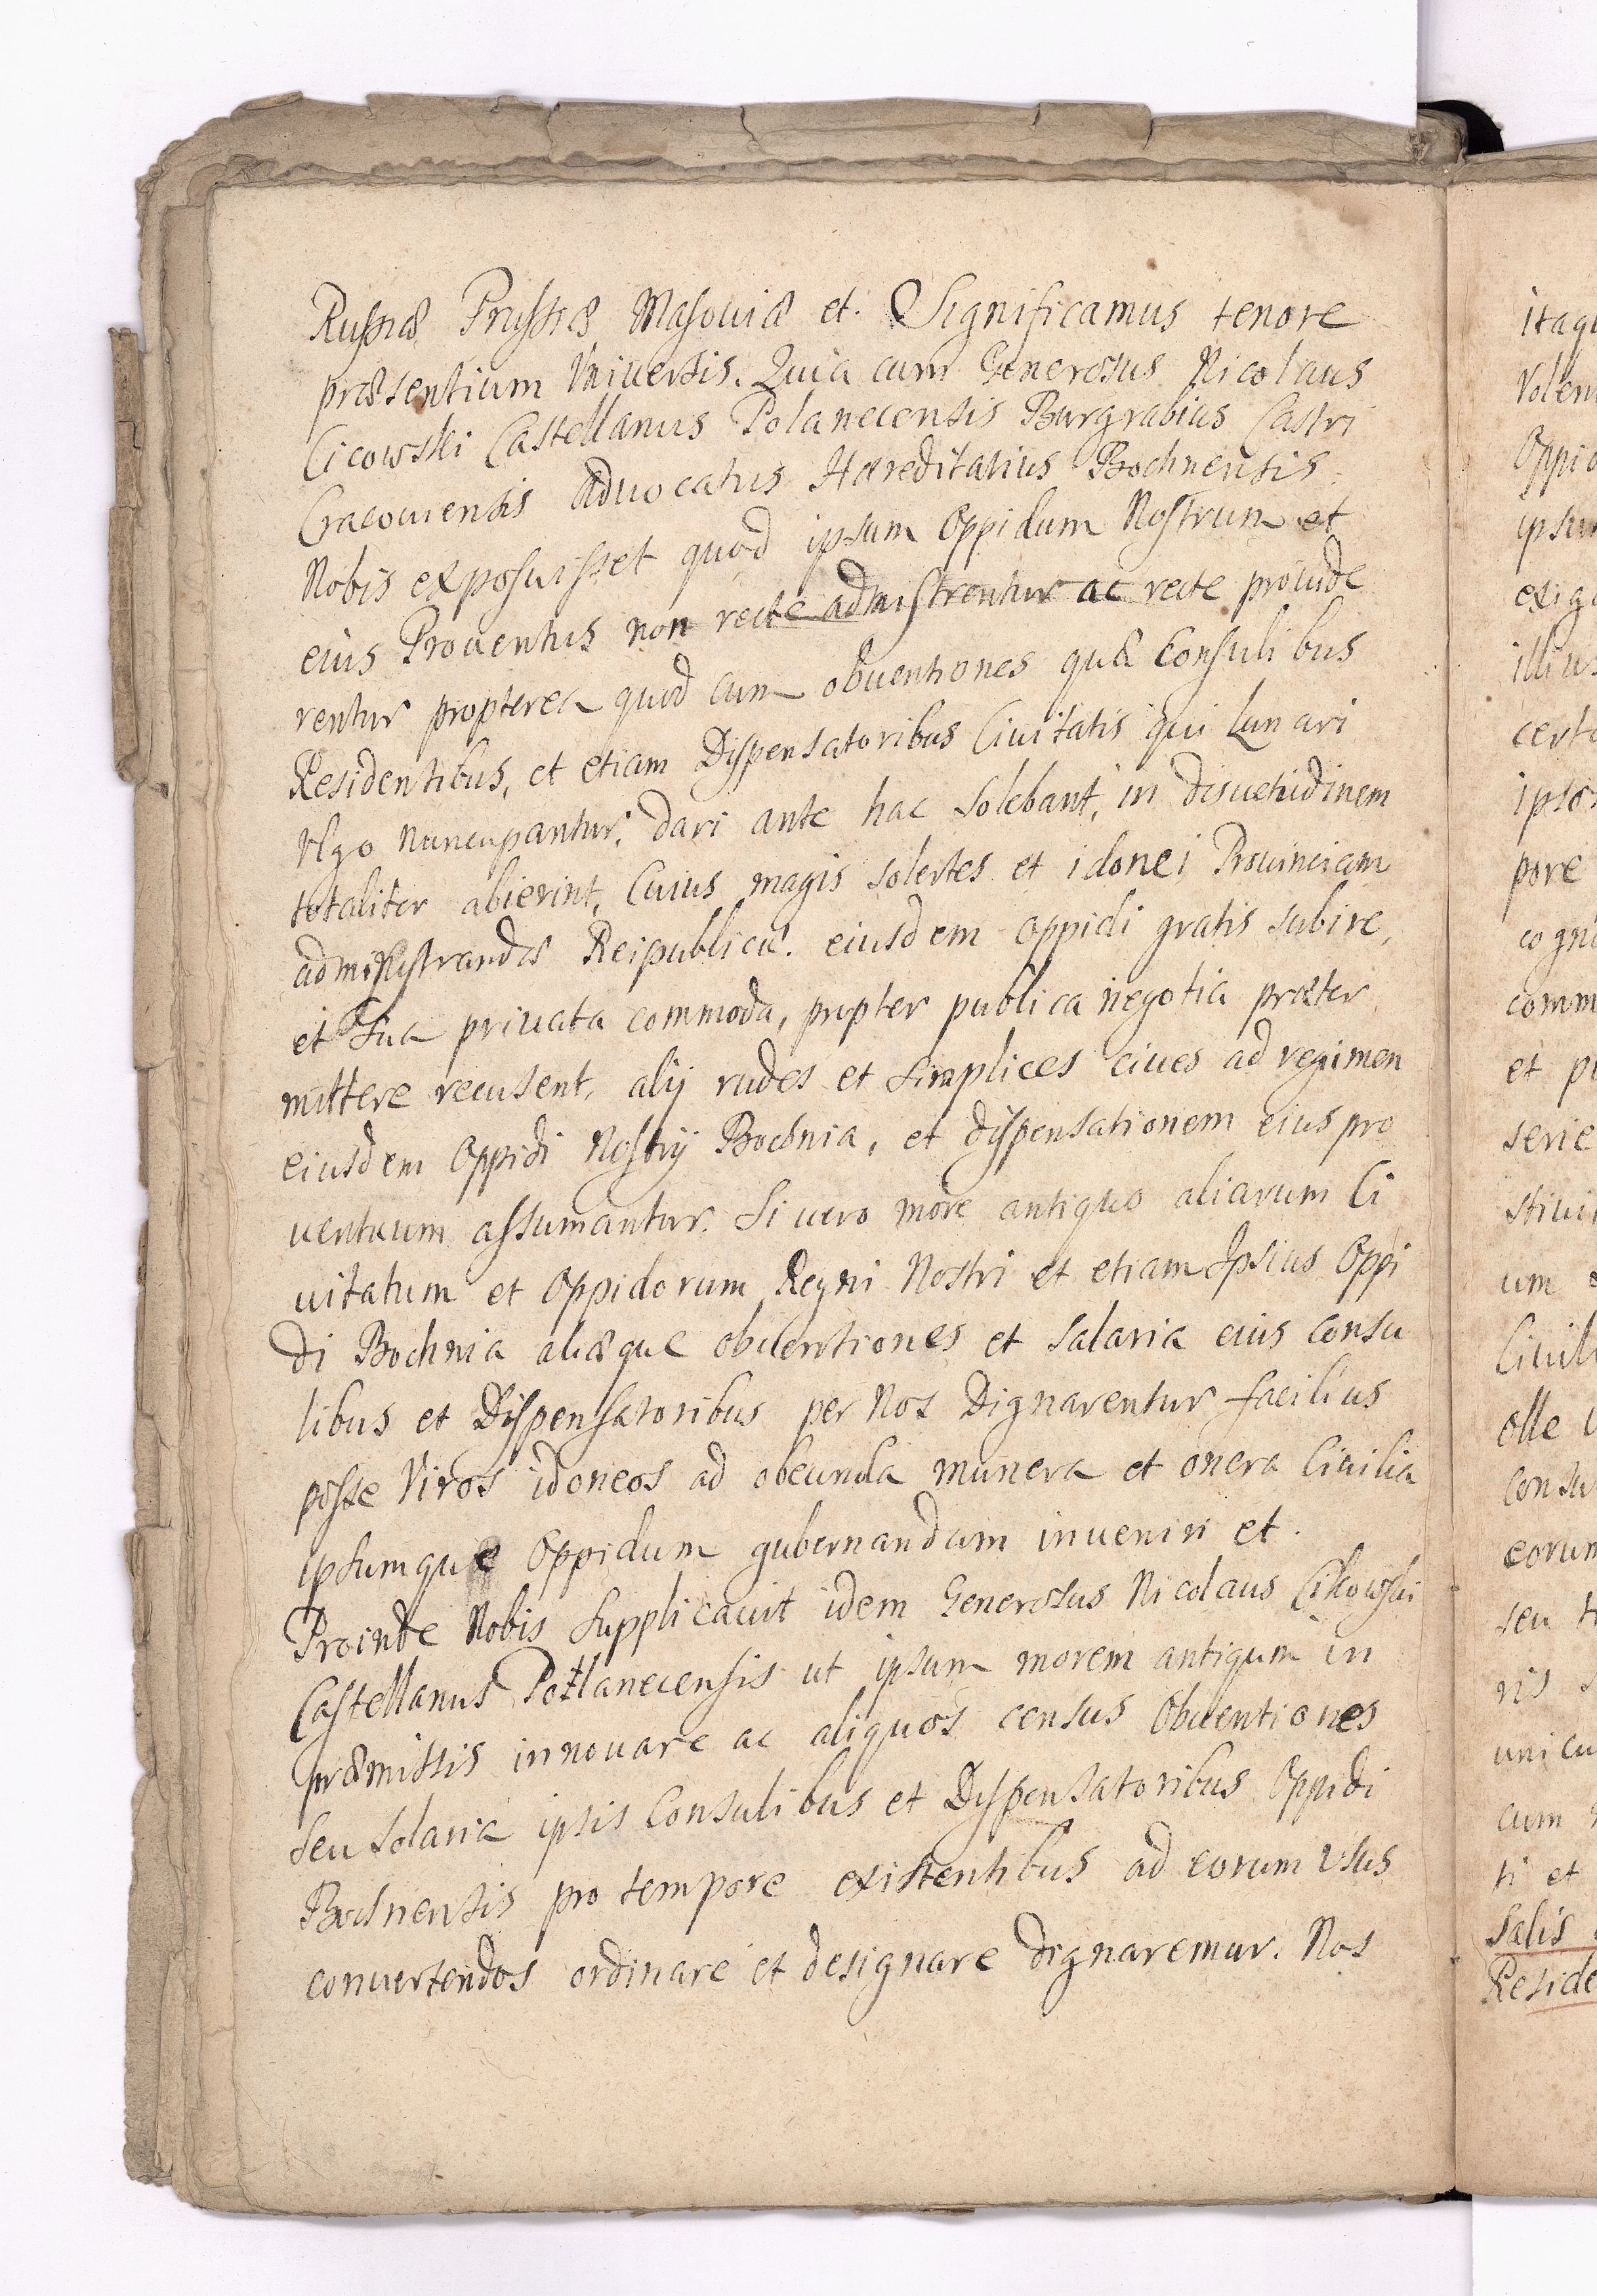 Russiæ Prussiæ Masouiæ et. Significamus tenore
præsentium Vniuersis. Quia cum Generosus Nicolaus
Cicowski Castellanus Polanecensis Burgrabius Castri
Cracouiensis Aduocatus Hæreditarius Bochnensis
Nobis exposuisset quod ipsum Oppidum Nostrum et
eius Prouentus non recte admistrentur ac recte prouide
rentur propterea quod cum obuentiones quæ Consulibus
Residentibus, et etiam Dispensatoribus Ciuitatis qui Lunari
vlgo nuncupantur, dari ante hac solebant, in disuetudinem
totaliter abierint, Cuius magis solertes et idonei Prouinciam
administrandæ Reipublicæ. eiusdem oppidi gratis subire,
et sua priuata commoda, propter publica negotia præter
mittere recusent, alij rudes et simplices ciues ad regimen
eiusdem Oppidi Nostrij Bochnia, et dispensationem eius pro
uentuum assumantur. Si uero more antiquo aliarum Ci
uitatum et Oppidorum Regni Nostri et etiam Ipsius Oppi
di Bochnia aliæque obuentiones et salaria eius consu
libus et Dispensatoribus per Nos Dignarentur facilius
posse Viros idoneos ad obeunda munera et onera Ciuilia
ipsumque Oppidum gubernandum inueniri et.
Proinde Nobis supplicauit idem Generosus Nicolaus Cikowski
Castellanus Potlanecensis ut ipsum morem antiqum in
præmissis innouare ac aliquos census Obuentiones
seu solaria ipsis Consulibus et Dispensatoribus Oppidi
Bochnensis pro tempore existentibus ad eorum vsus
conuertendos ordinare et designare dignaremur. Nos
itaq
Volen
Oppid
ipsu
exig
illius
certo
ipso
pore
cogn
comm
et p
serie
stiui
um
Ciuil
olle
consu
eorum
seu
ris
unicu
cum
ti et
Salis
Reside